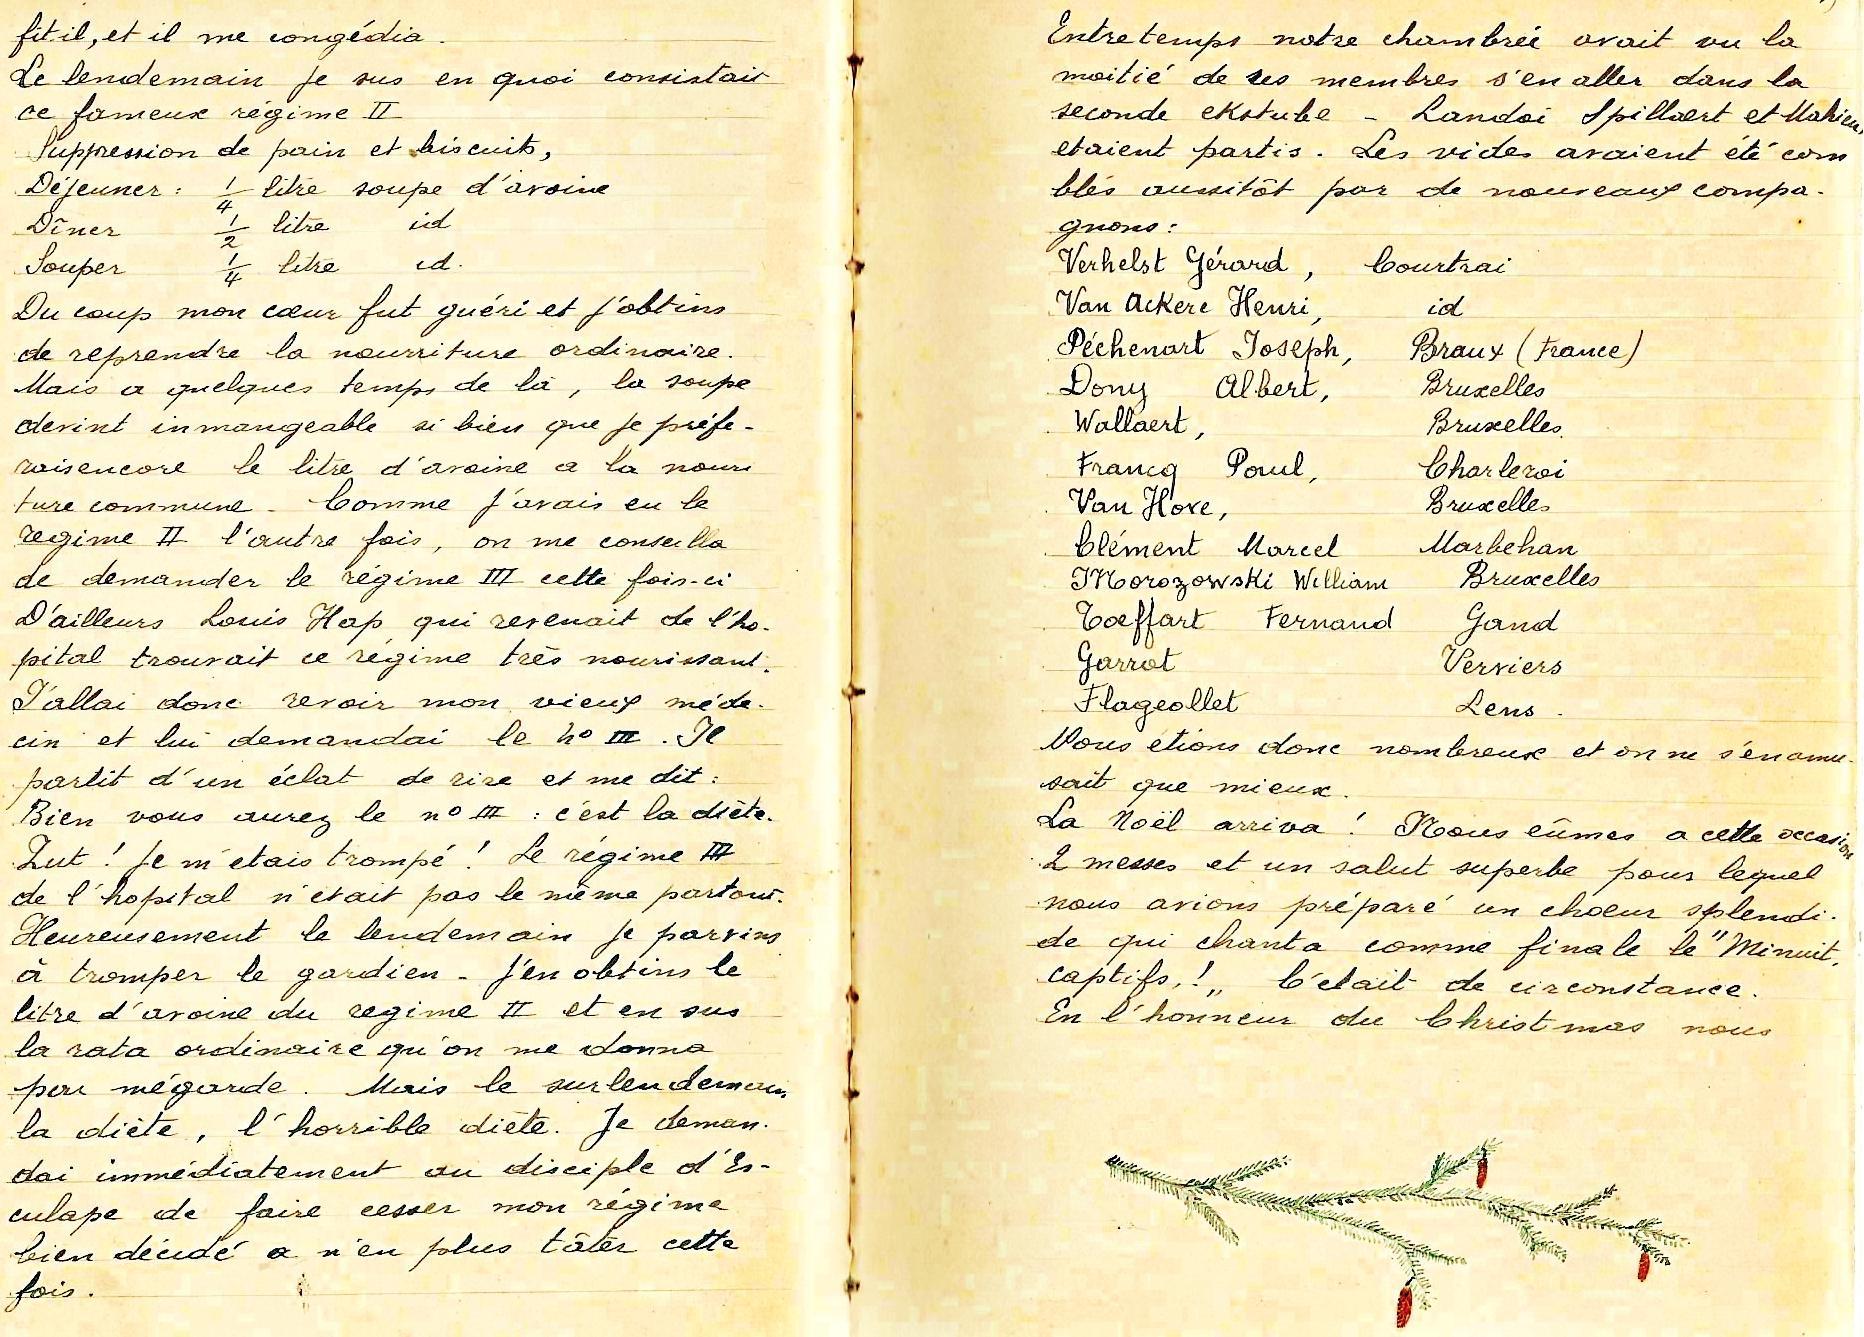 fit il, et il me congédia.
Le lendemain je sus en quoi consistait
ce fameux régime II
Suppression de pain et biscuits,
Déjeuner : 1/4 litre soupe d'avoine
Dîner 1/2 litre id
Souper 1/4 litre id.
Du coup mon cœur fut guéri et j'obtins
de reprendre la nourriture ordinaire.
Mais a quelques temps de là, la soupe
devint inmangeable si bien que je préfe-
rais encore le litre d'avoine a la nourri
ture commune - Comme j'avais eu le
regime II l'autre fois, on me conseilla
de demander le régime III cette fois-ci
D'ailleurs Louis Hap qui revenait de l'ho-
pital trouvait ce régime très nourissant.
J'allai donc revoir mon vieux méde-
cin et lui demandai le no III. Il
partit d'un éclat de rire et me dit :
Bien vous aurez le no III : c'est la diète.
Zut ! Je m'etais trompé ! Le régime III
de l'hopital n'était pas le même partout.
Heureusement le lendemain je parvins
à tromper le gardien - J'en obtins le
litre d'avoine du regime II et en sus
la rata ordinaire qu'on me donna
par mégarde. Mais le surlendemain
la diète, l'horrible diète. Je deman-
dai immédiatement au disciple d'Es-
culape de faire cesser mon régime
bien décidé a n'en plus tâter cette
fois.
Entretemps notre chambrée avait vu la
moitié de ses membres s'en aller dans la
seconde ekstube - Landoi Spillaert et Mahieu
etaient partis. Les vides avaient été com
blés aussitôt par de nouveaux compa-
gnons :
Verhelst Gérard, Courtrai
Van Ackere Henri, id
Péchenart Joseph, Braux (France)
Dony Albert, Bruxelles
Wallaert, Bruxelles
Francq Paul, Charleroi
Van Hove, Bruxelles
Clément Marcel Marbehan
Morozowski William Bruxelles
Toeffart Fernand Gand
Garrot Verviers
Flageollet Lens.
Nous étions donc nombreux et on ne s'en amu-
sait que mieux.
La Noël arriva ! Nous eûmes a cette occasion
2 messes et un salut superbe pour lequel
nous avions préparé un choeur splendi-
de qui chanta comme finale le "Minuit,
captifs,!„ C'était de circonstance.
En l'honneur du Christmas nous